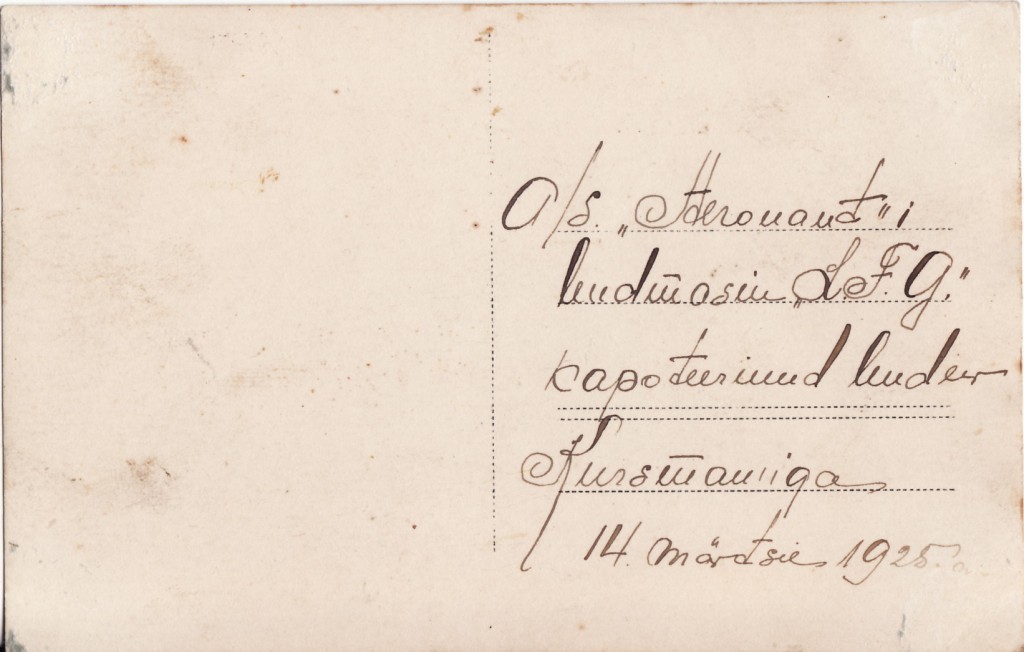 A/S. „Aeronaut" i
lendmasin „L.F.G."
kapoteerinud lendur
Kursmanniga
14. märtsil 1925. a.